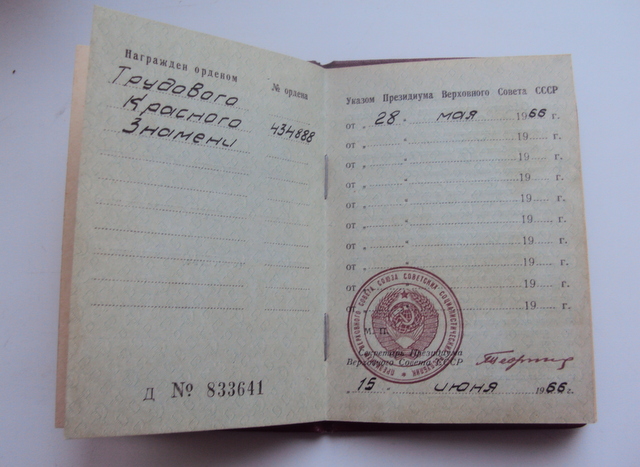 Награжден орденом
№ ордена
Трудового
Красного 434888
Знамени
Д № 833641
Указом Президиума Верховного Совета СССР
от „ 28 " мая 1966 г.
от „ " 19 г.
от „ " 19 г.
от „ " 19 г.
от „ " 19 г.
от „ " 19 г.
от „ " 19 г.
от „ " 19 г.
от „ " 19 г.
от „ " 19 г.
ПРЕЗИДИУМ ВЕРХОВНОГО СОВЕТА СОЮЗА СОВЕТСКИХ СОЦИАЛИСТИЧЕСКИХ РЕСПУБЛИК
М. П.
Секретарь Президиума
Верховного Совета СССР
„ 15 " июня 1966 г.